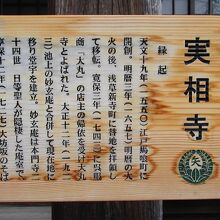 実相寺
縁起
天文十九年(一五五〇)江戸馬喰町に
開創。明暦三年(一六五七)明暦の大
火の後、浅草新寺町に替地を拝領し
て移転。寛保三年(一七四三)に呉服
商「大丸」の店主の帰依を受け大丸
寺とよばれた。大正十二年(一九
三)池上の妙玄庵と合併して現在地に
移り堂宇を建立。妙玄庵は本門寺二
十四世 日等聖人が隠棲した庵室で
享保十二年(一七二七)大坊坂のそば